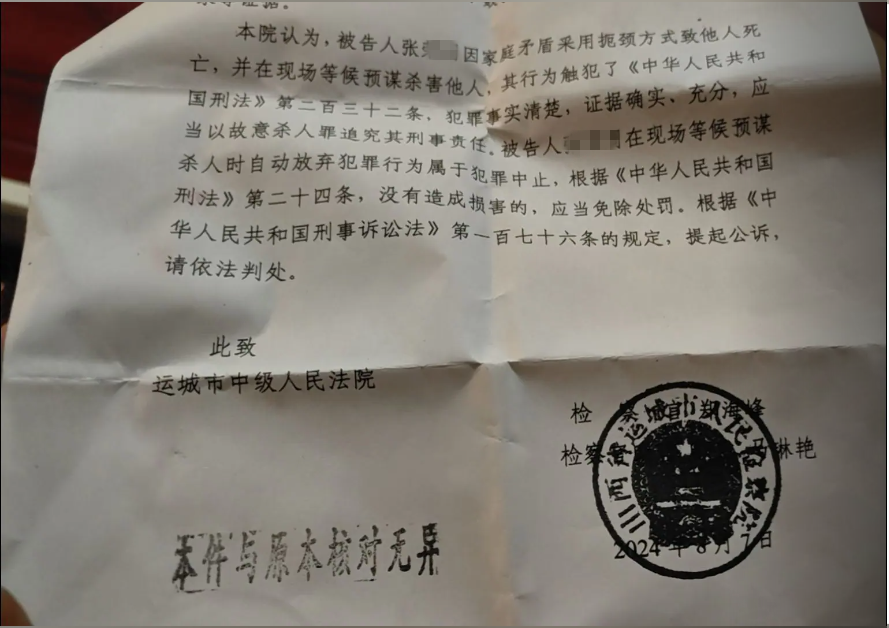 等证据。
本院认为，被告人张 因家庭矛盾采用扼颈方式致他人死
亡，并在现场等候预谋杀害他人，其行为触犯了《中华人民共和
国刑法》第二百三十二条，犯罪事实清楚，证据确实、充分，应
当以故意杀人罪追究其刑事责任。被告人 在现场等候预谋
杀人时自动放弃犯罪行为属于犯罪中止，根据《中华人民共和国
刑法》第二十四条，没有造成损害的，应当免除处罚。根据《中
华人民共和国刑事诉讼法》第一百七十六条的规定，提起公诉，
请依法判处。
此致
运城市中级人民法院
检 察 官 郑海峰
检察官 马琳艳
山西省运城市人民检察院
2024年8月7日
本件与原本核对无异